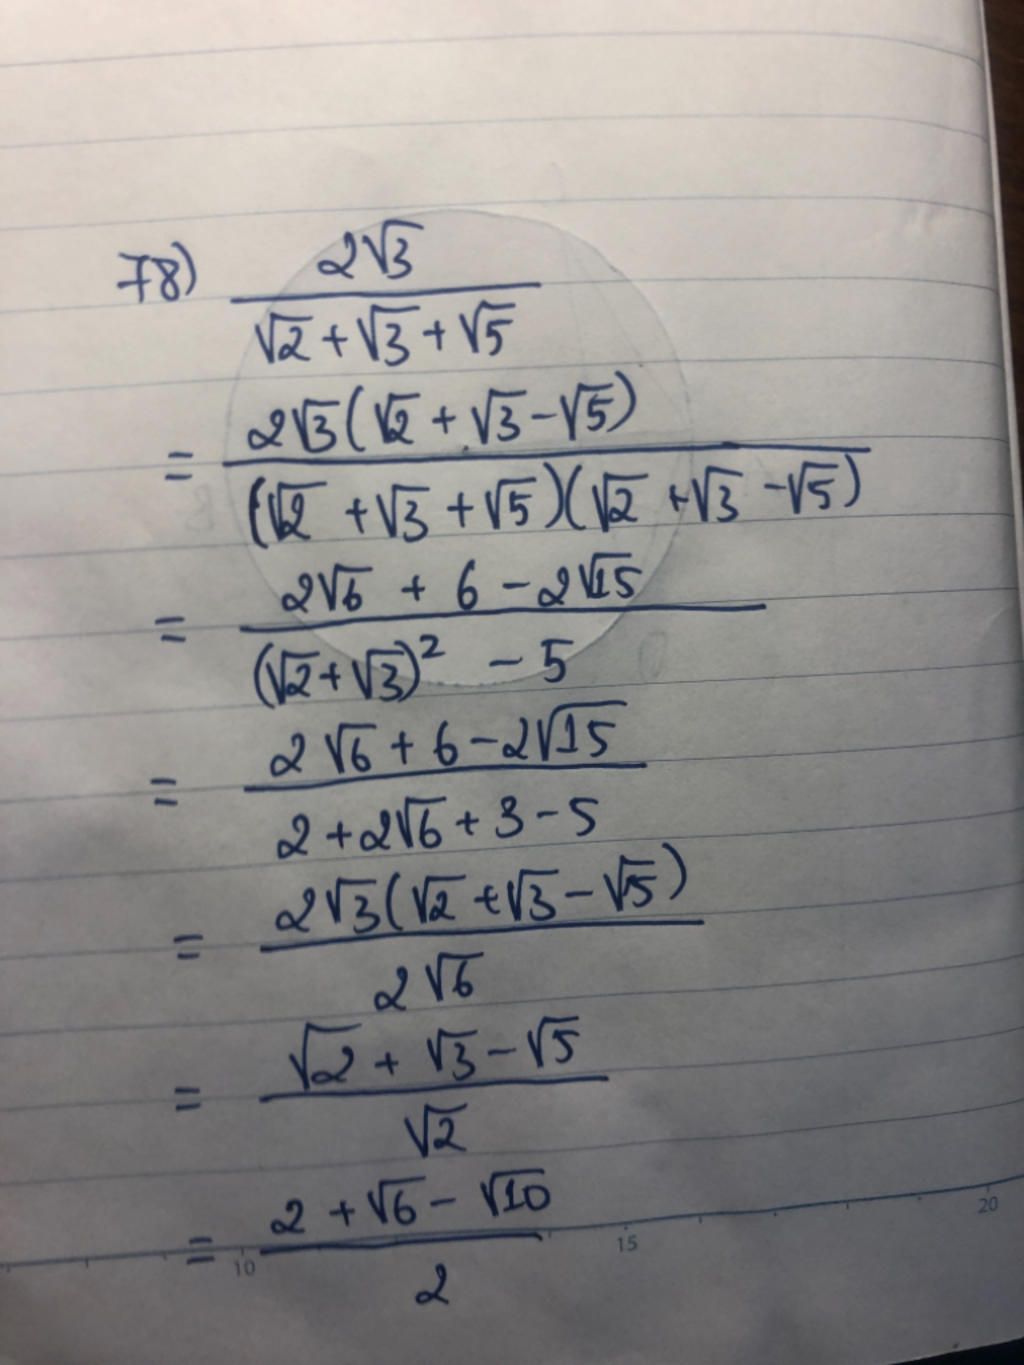 78) 2√3
√2 + √3 + √5
= 2√3(√2 + √3 - √5)
(√2 + √3 + √5)(√2 + √3 - √5)
= 2√6 + 6 - 2√15
(√2 + √3)² - 5
= 2√6 + 6 - 2√15
2 + 2√6 + 3 - 5
= 2√3(√2 + √3 - √5)
2√6
= √2 + √3 - √5
√2
= 2 + √6 - √10
2
10 15 20